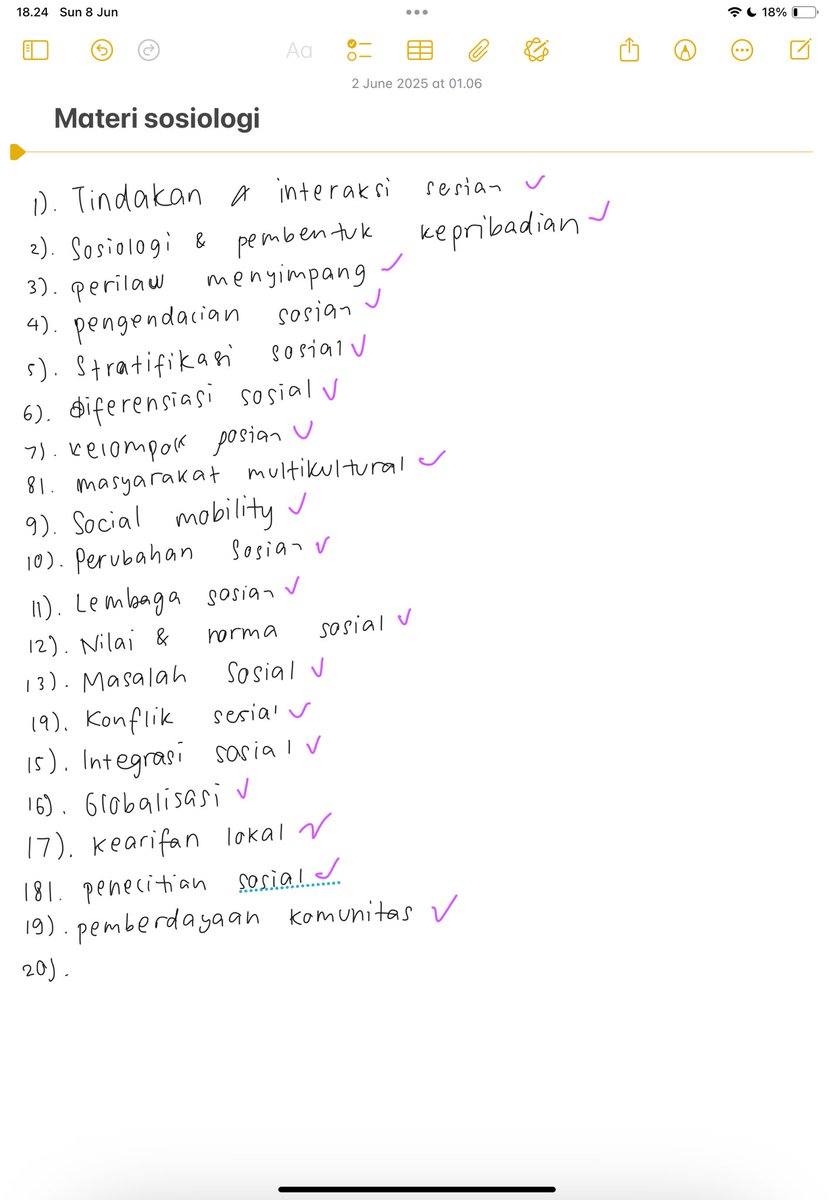 18.24 Sun 8 Jun 18%
Aa
2 June 2025 at 01.06
Materi sosiologi
1). Tindakan & interaksi sosial ✓
2). Sosiologi & pembentuk kepribadian ✓
3). perilaku menyimpang ✓
4). pengendalian sosial ✓
5). Stratifikasi sosial ✓
6). diferensiasi sosial ✓
7). kelompok sosial ✓
8). masyarakat multikultural ✓
9). Social mobility ✓
10). Perubahan Sosial ✓
11). Lembaga sosial ✓
12). Nilai & norma sosial ✓
13). Masalah Sosial ✓
14). Konflik sosial ✓
15). Integrasi sosial ✓
16). Globalisasi ✓
17). kearifan lokal ✓
18). penelitian sosial ✓
19). pemberdayaan komunitas ✓
20).